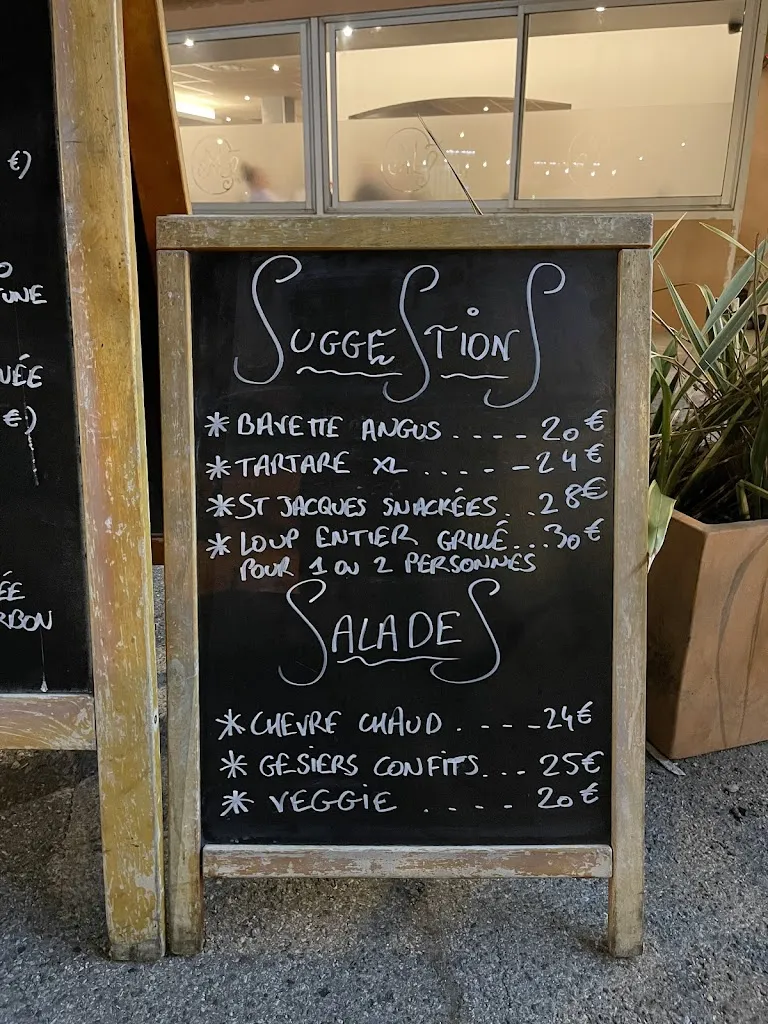 €)
TUNE
NÉE
€)
ÉE
RBON
SUGGESTIONS
* BAVETTE ANGUS . . . . - 20 €
* TARTARE XL . . . . - - 24 €
* ST JACQUES SNACKÉES . . 28 €
* LOUP ENTIER GRILLÉ . . . 30 €
POUR 1 OU 2 PERSONNES
SALADES
* CHEVRE CHAUD . - - - - 24 €
* GESIERS CONFITS . . . 25 €
* VEGGIE . . . . 20 €